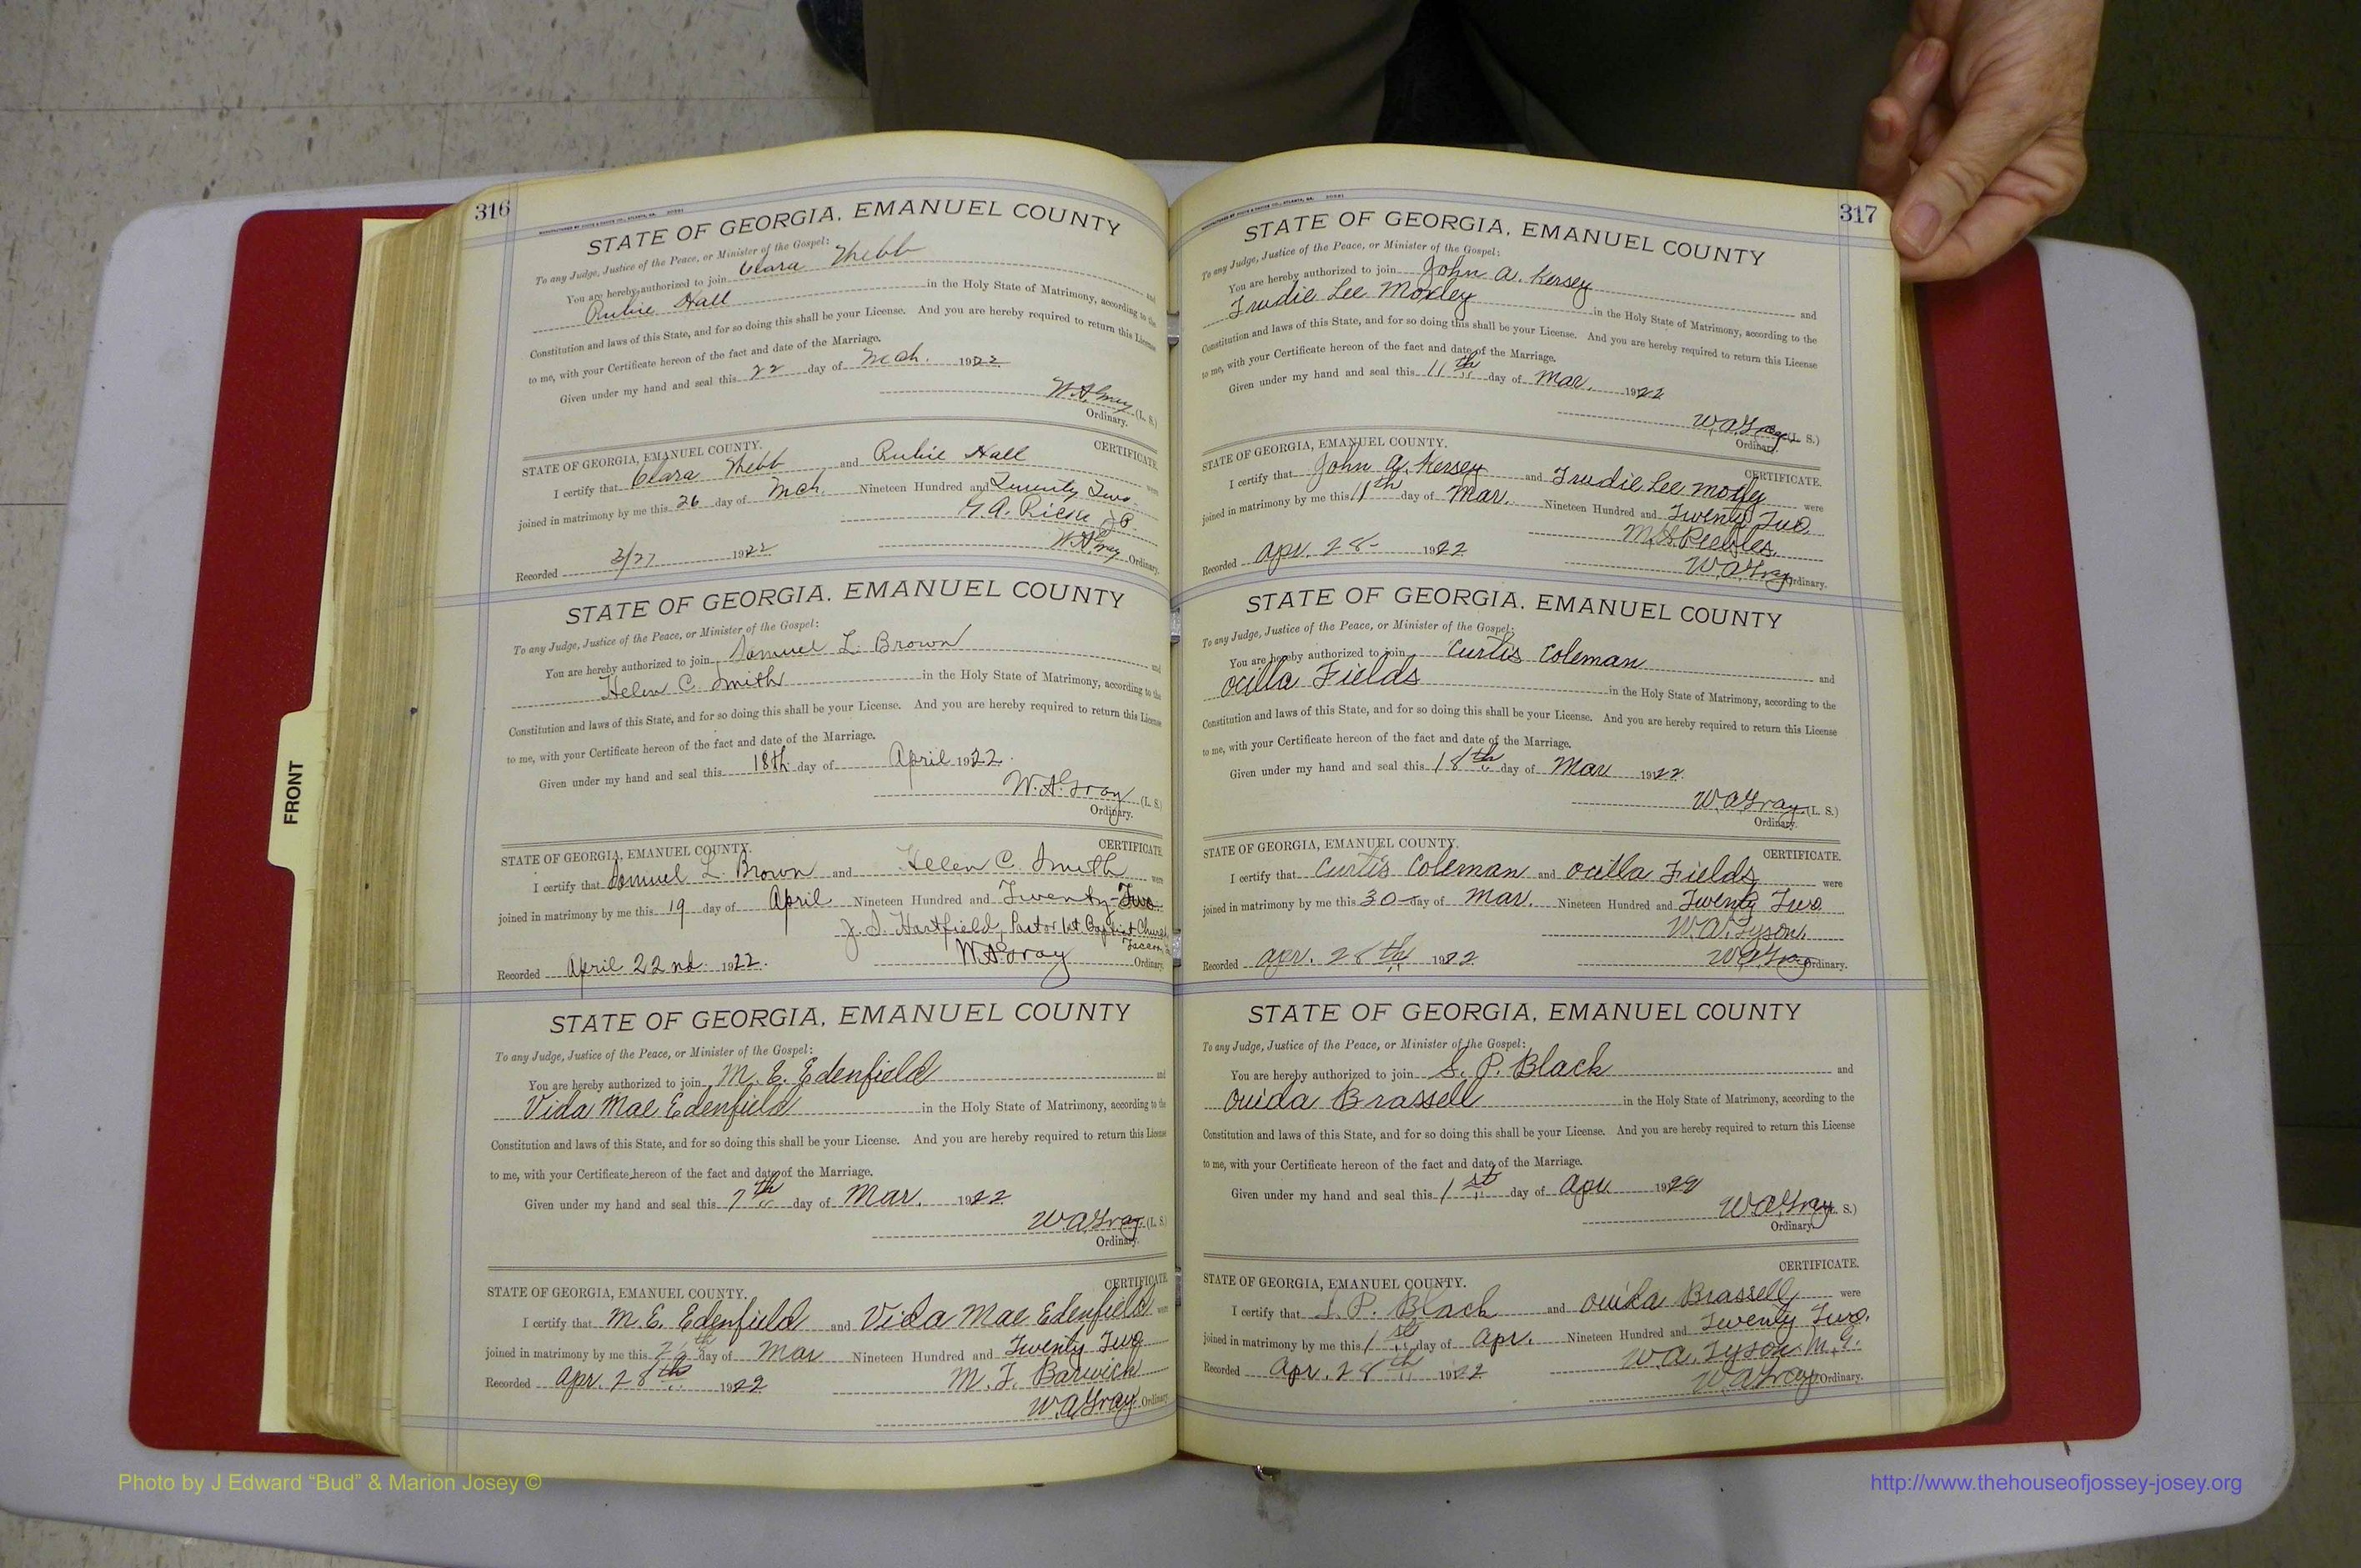 316
STATE OF GEORGIA, EMANUEL COUNTY
To any Judge, Justice of the Peace, or Minister of the Gospel:
You are hereby authorized to join Clara Webb and
Rubie Hall in the Holy State of Matrimony, according to the
Constitution and laws of this State, and for so doing this shall be your License. And you are hereby required to return this License
to me, with your Certificate hereon of the fact and date of the Marriage.
Given under my hand and seal this 22 day of Mch. 1922
W.A. Gray (L. S.)
Ordinary.
STATE OF GEORGIA, EMANUEL COUNTY. CERTIFICATE.
I certify that Clara Webb and Rubie Hall were
joined in matrimony by me this 26 day of Mch. Nineteen Hundred and Twenty Two
G.A. J.P.
Recorded 3/27 1922 W.A. Gray Ordinary.
STATE OF GEORGIA, EMANUEL COUNTY
To any Judge, Justice of the Peace, or Minister of the Gospel:
You are hereby authorized to join Samuel L. Brown and
Helen C. Smith in the Holy State of Matrimony, according to the
Constitution and laws of this State, and for so doing this shall be your License. And you are hereby required to return this License
to me, with your Certificate hereon of the fact and date of the Marriage.
Given under my hand and seal this 18th day of April 1922.
W.A. Gray (L. S.)
Ordinary.
STATE OF GEORGIA, EMANUEL COUNTY. CERTIFICATE.
I certify that Samuel L. Brown and Helen C. Smith were
joined in matrimony by me this 19 day of April Nineteen Hundred and Twenty-Two
J. S. Hartfield, Pastor 1st Baptist Church
Recorded April 22nd. 1922. W.A. Gray Ordinary.
STATE OF GEORGIA, EMANUEL COUNTY
To any Judge, Justice of the Peace, or Minister of the Gospel:
You are hereby authorized to join M. E. Edenfield and
Vida Mae Edenfield in the Holy State of Matrimony, according to the
Constitution and laws of this State, and for so doing this shall be your License. And you are hereby required to return this License
to me, with your Certificate hereon of the fact and date of the Marriage.
Given under my hand and seal this 7th day of Mar. 1922
W.A. Gray (L. S.)
Ordinary.
STATE OF GEORGIA, EMANUEL COUNTY. CERTIFICATE.
I certify that M. E. Edenfield and Vida Mae Edenfield were
joined in matrimony by me this day of Mar Nineteen Hundred and Twenty Two
Recorded Apr. 28th 1922 M. F. Barwick
W.A. Gray Ordinary.
317
STATE OF GEORGIA, EMANUEL COUNTY
To any Judge, Justice of the Peace, or Minister of the Gospel:
You are hereby authorized to join John A. Kersey and
Trudie Lee Moxley in the Holy State of Matrimony, according to the
Constitution and laws of this State, and for so doing this shall be your License. And you are hereby required to return this License
to me, with your Certificate hereon of the fact and date of the Marriage.
Given under my hand and seal this 11th day of Mar. 1922
W.A. Gray (L. S.)
Ordinary.
STATE OF GEORGIA, EMANUEL COUNTY. CERTIFICATE.
I certify that John A. Kersey and Trudie Lee Moxley were
joined in matrimony by me this 11th day of Mar. Nineteen Hundred and Twenty Two
M.H. Peebles.
Recorded Apr. 28- 1922 W.A. Gray Ordinary.
STATE OF GEORGIA, EMANUEL COUNTY
To any Judge, Justice of the Peace, or Minister of the Gospel:
You are hereby authorized to join Curtis Coleman and
Ocilla Fields in the Holy State of Matrimony, according to the
Constitution and laws of this State, and for so doing this shall be your License. And you are hereby required to return this License
to me, with your Certificate hereon of the fact and date of the Marriage.
Given under my hand and seal this 18th day of Mar 1922
W.A. Gray (L. S.)
Ordinary.
STATE OF GEORGIA, EMANUEL COUNTY. CERTIFICATE.
I certify that Curtis Coleman and Ocilla Fields were
joined in matrimony by me this 30- day of Mar. Nineteen Hundred and Twenty Two
W.A. Tyson.
Recorded Apr. 28th 1922 W.A. Gray Ordinary.
STATE OF GEORGIA, EMANUEL COUNTY
To any Judge, Justice of the Peace, or Minister of the Gospel:
You are hereby authorized to join S. P. Black and
Ouida Brassell in the Holy State of Matrimony, according to the
Constitution and laws of this State, and for so doing this shall be your License. And you are hereby required to return this License
to me, with your Certificate hereon of the fact and date of the Marriage.
Given under my hand and seal this 1st day of Apr 1922
W.A. Gray (L. S.)
Ordinary.
CERTIFICATE.
STATE OF GEORGIA, EMANUEL COUNTY.
I certify that S. P. Black and Ouida Brassell were
joined in matrimony by me this 1st day of Apr. Nineteen Hundred and Twenty Two.
W.A. Tyson. M.G.
Recorded Apr. 28th 1922 W.A. Gray Ordinary.
FRONT
Photo by J Edward “Bud” & Marion Josey ©
http://www.thehouseofjossey-josey.org